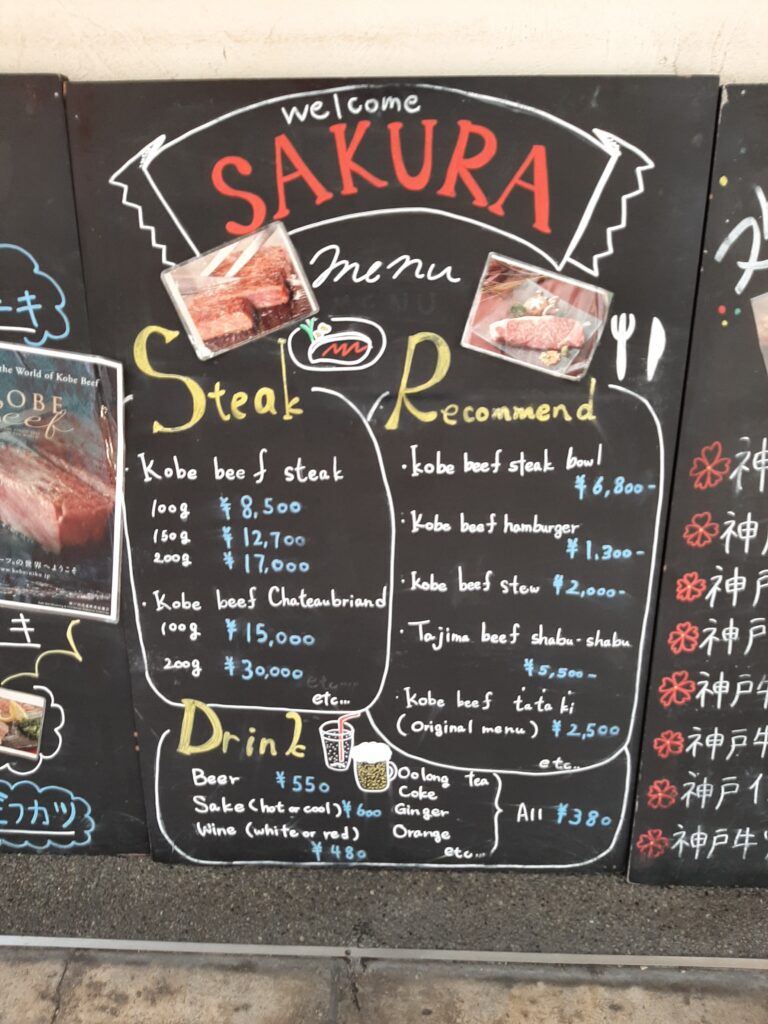 welcome
SAKURA
menu
Steak
・Kobe beef steak
100g ¥8,500
150g ¥12,700
200g ¥17,000
・Kobe beef Chateaubriand
100g ¥15,000
200g ¥30,000
etc...
Recommend
・kobe beef steak bowl
¥6,800-
・Kobe beef hamburger
¥1.300-
・Kobe beef stew ¥2,000-
・Tajima beef shabu-shabu
¥5,500-
・Kobe beef tataki
(Original menu) ¥2,500
etc..
Drink
Beer ¥550
Sake (hot or cool) ¥600
Wine (white or red)
¥480
Oolong tea
Coke
Ginger
Orange
etc...
All ¥380
ーキ
the World of Kobe Beef
KOBE
beef
の世界へようこそ
キ
フカツ
神
神戸
神戸
神戸牛
神戸牛
神戸牛
神戸
神戸牛